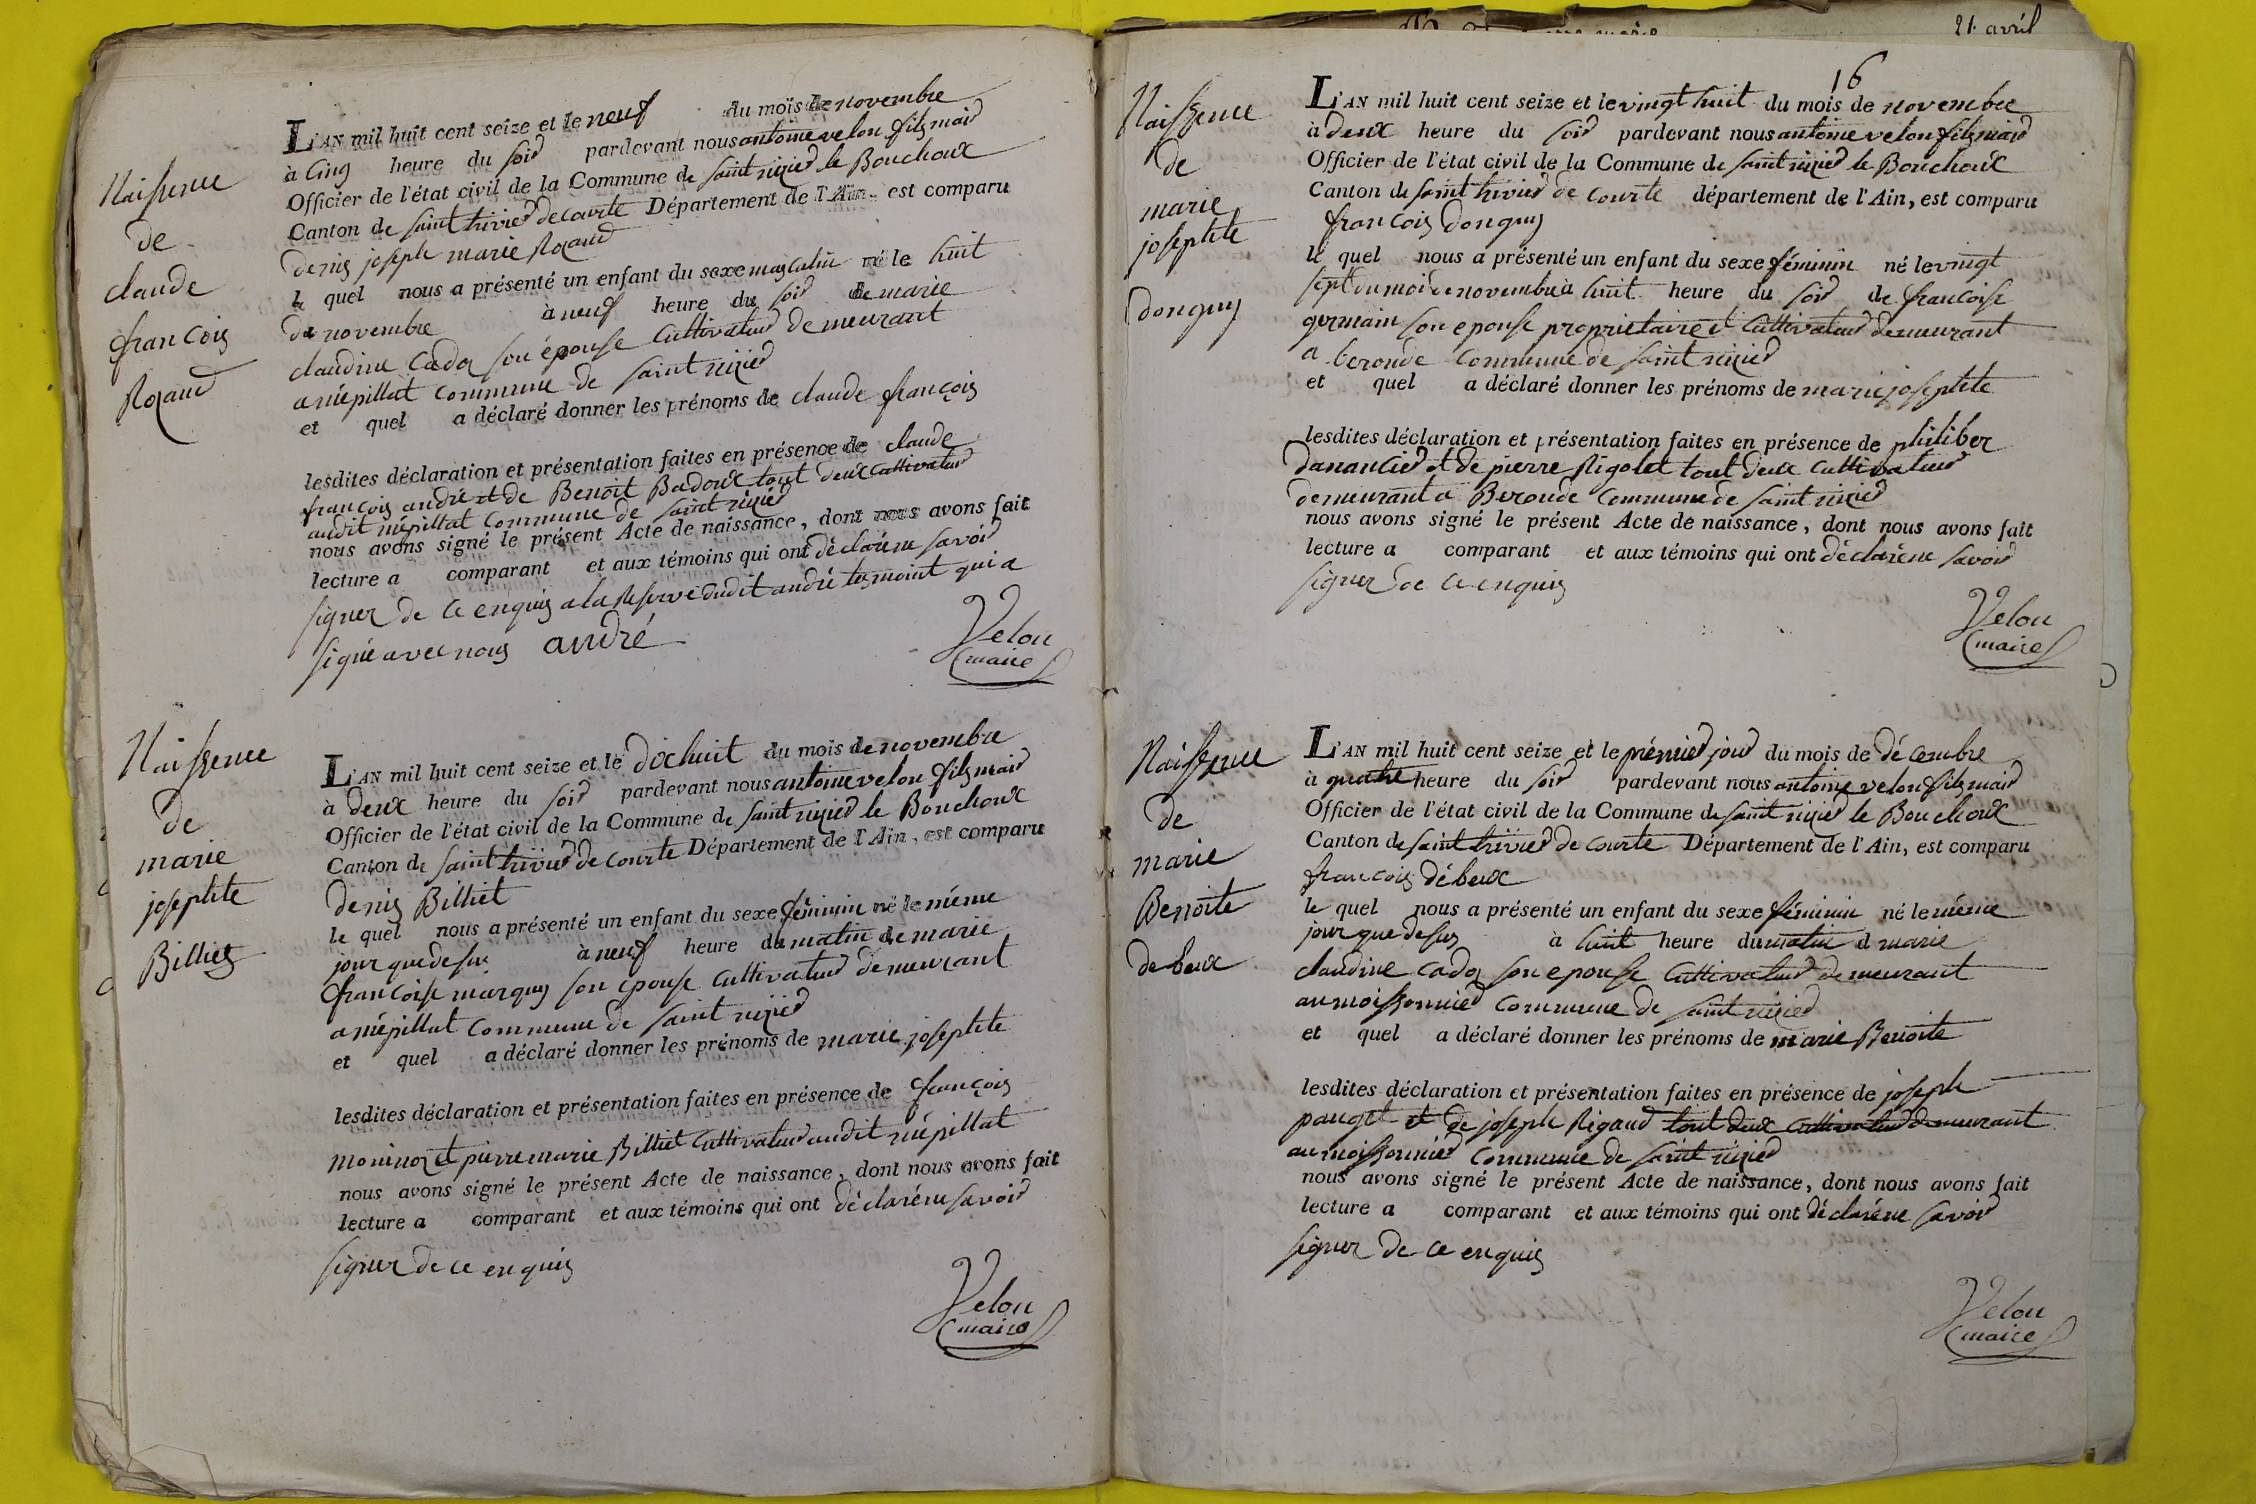 Naissence
de
claude
francois
Rozand
L'AN mil huit cent seize et le neuf du mois de novembre
à cinq heure du soir pardevant nous antoine velon fils maire
Officier de l'état civil de la Commune de saint nizier le Bouchoux
Canton de saint trivier de courte Département de l'Ain, est comparu
denis joseph marie Rozand
le quel nous a présenté un enfant du sexe masculin né le huit
de novembre à neuf heure du soir de marie
claudine Cadoz son épouse cultivateur demeurant
a népillat commune de saint nizier
et quel a déclaré donner les prénoms de claude françois
lesdites déclaration et présentation faites en présence de claude
françois andré et de Benoit Badoux tout deux cultivateur
audit népillat commune de saint nizier
nous avons signé le présent Acte de naissance, dont nous avons fait
lecture a comparant et aux témoins qui ont déclaré ne savoir
signer de ce enquis a la reserve dudit andré tesmoint qui a
signé avec nous andré
Velon
maire
Naissence
de
marie
josephte
Billiet
L'AN mil huit cent seize et le dixhuit du mois de novembre
à deux heure du soir pardevant nous antoine velon fils maire
Officier de l'état civil de la Commune de saint nizier le Bouchoux
Canton de saint trivier de courte Département de l'Ain, est comparu
denis Billiet
le quel nous a présenté un enfant du sexe féminin né le même
jour que desus à neuf heure du matin de marie
francoise marquis son epouse cultivateur demeurant
a népillat commune de saint nizier
et quel a déclaré donner les prénoms de marie josephte
lesdites déclaration et présentation faites en présence de françois
moninoz et pierre marie Billiet cultivateur audit népillat
nous avons signé le présent Acte de naissance, dont nous avons fait
lecture a comparant et aux témoins qui ont déclaré ne savoir
signer de ce enquis
Velon
maire
21 avril
16
Naissence
de
marie
josephte
donguy
L'AN mil huit cent seize et le vingt huit du mois de novembre
à deux heure du soir pardevant nous antoine velon fils maire
Officier de l'état civil de la Commune de saint nizier le Bouchoux
Canton de saint trivier de courte département de l'Ain, est comparu
francois donguy
le quel nous a présenté un enfant du sexe féminin né le vingt
sept du moi de novembre à huit heure du soir de francoise
germain son epouse proprietaire et cultivateur demeurant
a beronde commune de saint nizier
et quel a déclaré donner les prénoms de marie josephte
lesdites déclaration et présentation faites en présence de philiber
danancier et de pierre Rigolet tout deux cultivateur
demeurant a Beronde commune de saint nizier
nous avons signé le présent Acte de naissance, dont nous avons fait
lecture a comparant et aux témoins qui ont déclaré ne savoir
signer de ce enquis
Velon
maire
Naissence
de
marie
Benoite
debeux
L'AN mil huit cent seize et le prémier jour du mois de décembre
à quatre heure du soir pardevant nous antoine velon fils maire
Officier de l'état civil de la Commune de saint nizier le Bouchoux
Canton de saint trivier de courte Département de l'Ain, est comparu
francois débeux
le quel nous a présenté un enfant du sexe féminin né le même
jour que desus à huit heure du matin d marie
claudine cadoz son epouse cultivateur demeurant
au moissonnier commune de saint nizier
et quel a déclaré donner les prénoms de marie Benoite
lesdites déclaration et présentation faites en présence de joseph
pauget et de joseph Rigaud tout deux cultivateur demeurant
au moissonnier commune de saint nizier
nous avons signé le présent Acte de naissance, dont nous avons fait
lecture a comparant et aux témoins qui ont déclaré ne savoir
signer de ce enquis
Velon
maire